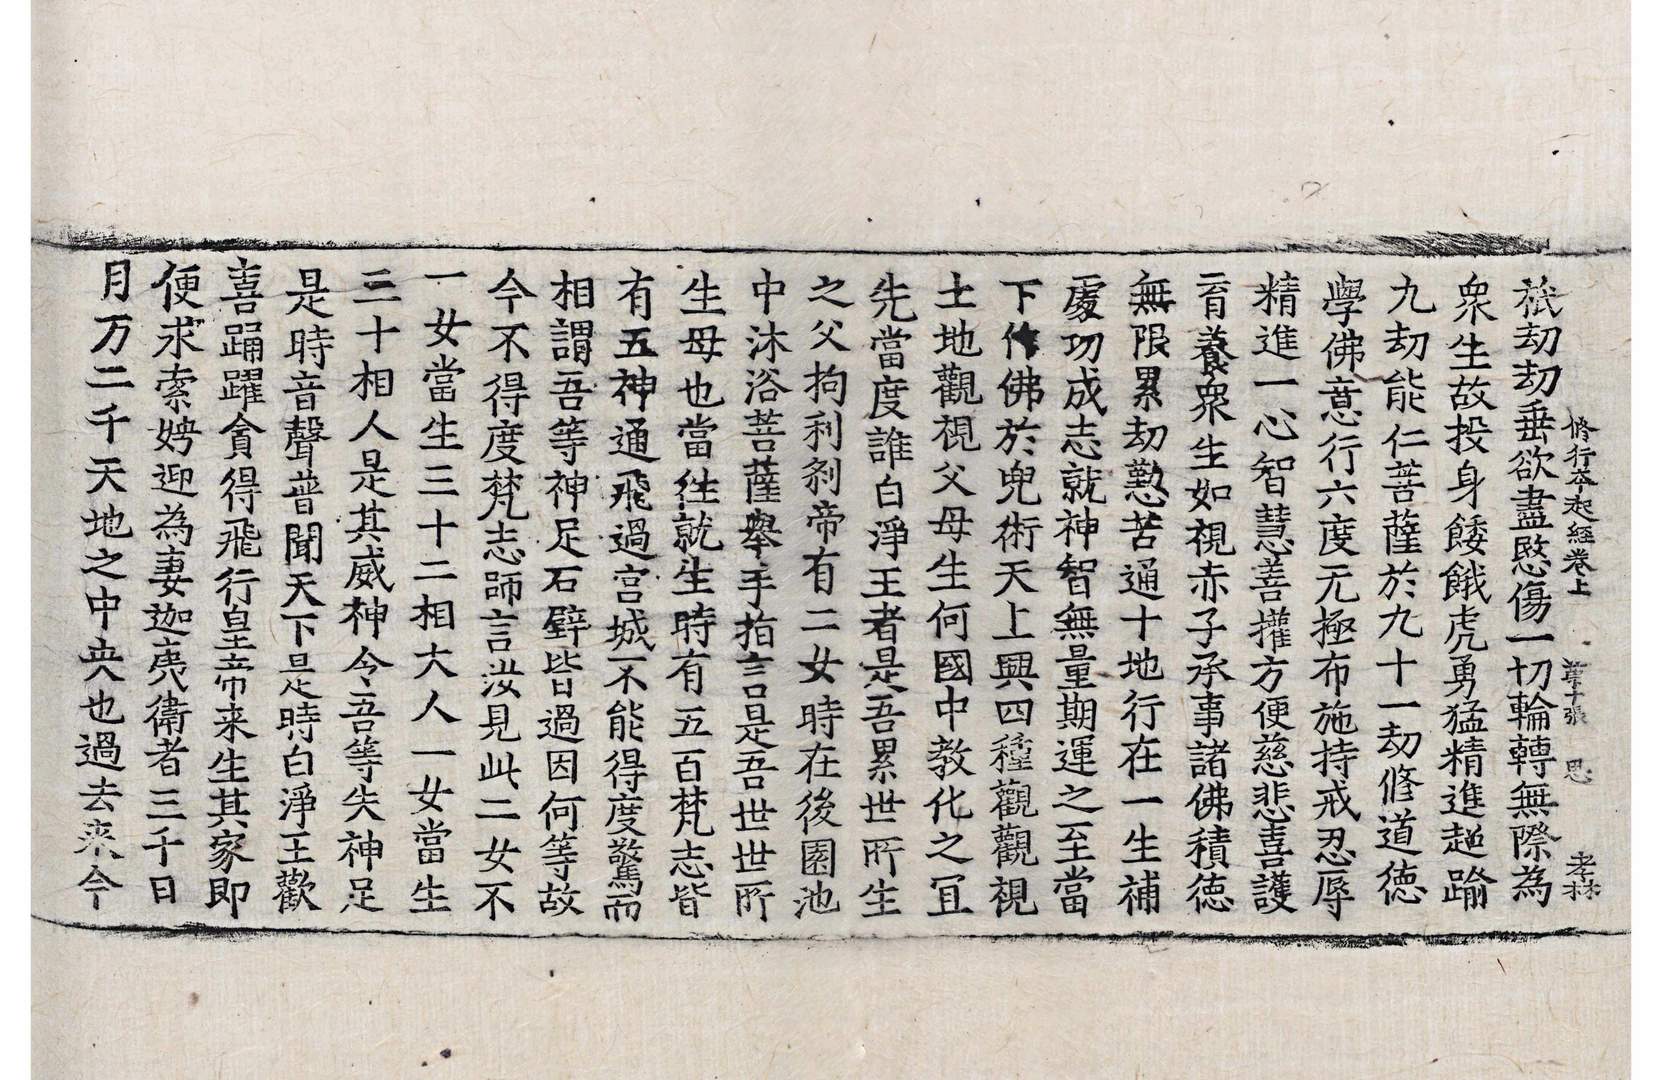 修行本起經卷上　第十張　思　孝林
祇劫劫垂欲盡愍傷一切輪轉無際為
衆生故投身餧餓虎勇猛精進超踰
九劫能仁菩薩於九十一劫修道德
學佛意行六度无極布施持戒忍辱
精進一心智慧善權方便慈悲喜護
育養衆生如視赤子承事諸佛積德
無限累劫懃苦通十地行在一生補
處功成志就神智無量期運之至當
下作佛於兜術天上興四種觀觀視
土地觀視父母生何國中教化之冝
先當度誰白淨王者是吾累世所生
之父拘利剎帝有二女時在後園池
中沐浴菩薩舉手指言是吾世世所
生母也當往就生時有五百梵志皆
有五神通飛過宫城不能得度驚而
相謂吾等神足石壁皆過因何等故
今不得度梵志師言汝見此二女不
一女當生三十二相大人一女當生
三十相人是其威神令吾等失神足
是時音聲普聞天下是時白淨王歡
喜踊躍貪得飛行皇帝来生其家即
便求索娉迎為妻迦夷衛者三千日
月万二千天地之中央也過去来今